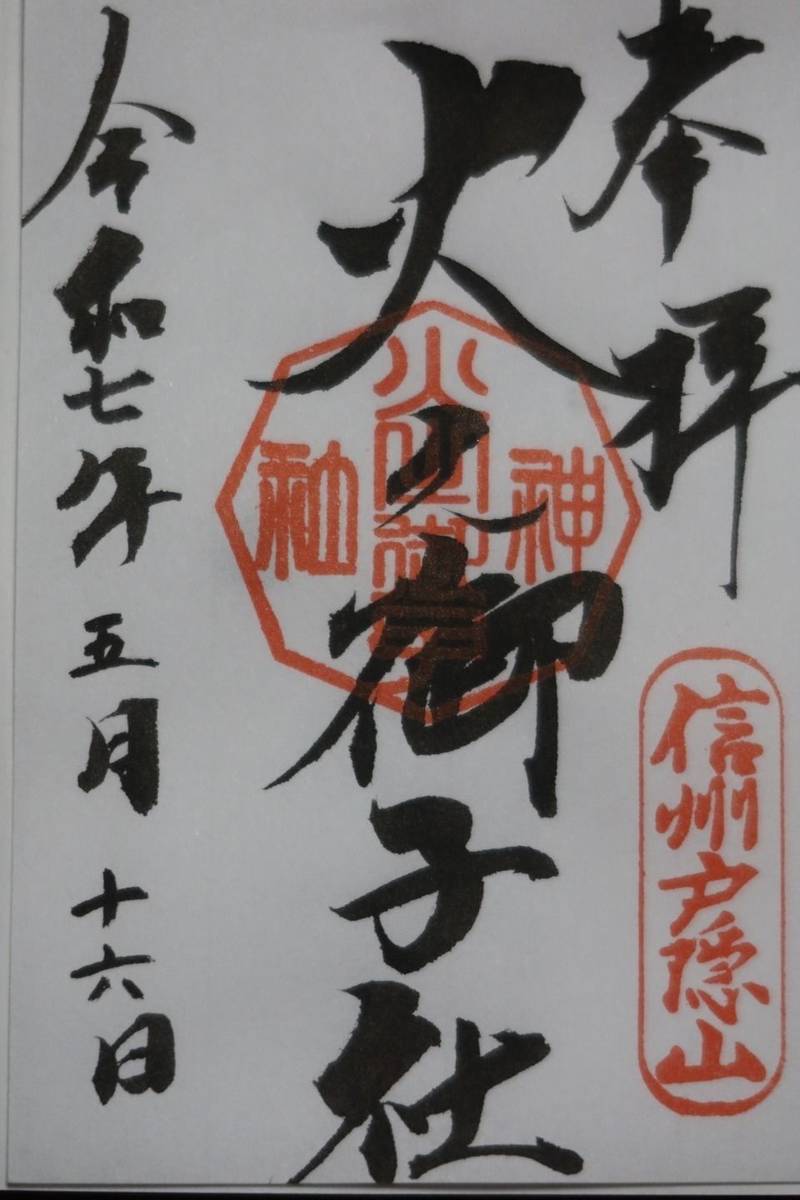 奉拝
信州戸隠山
火之御子社
神社
令和七年五月十六日